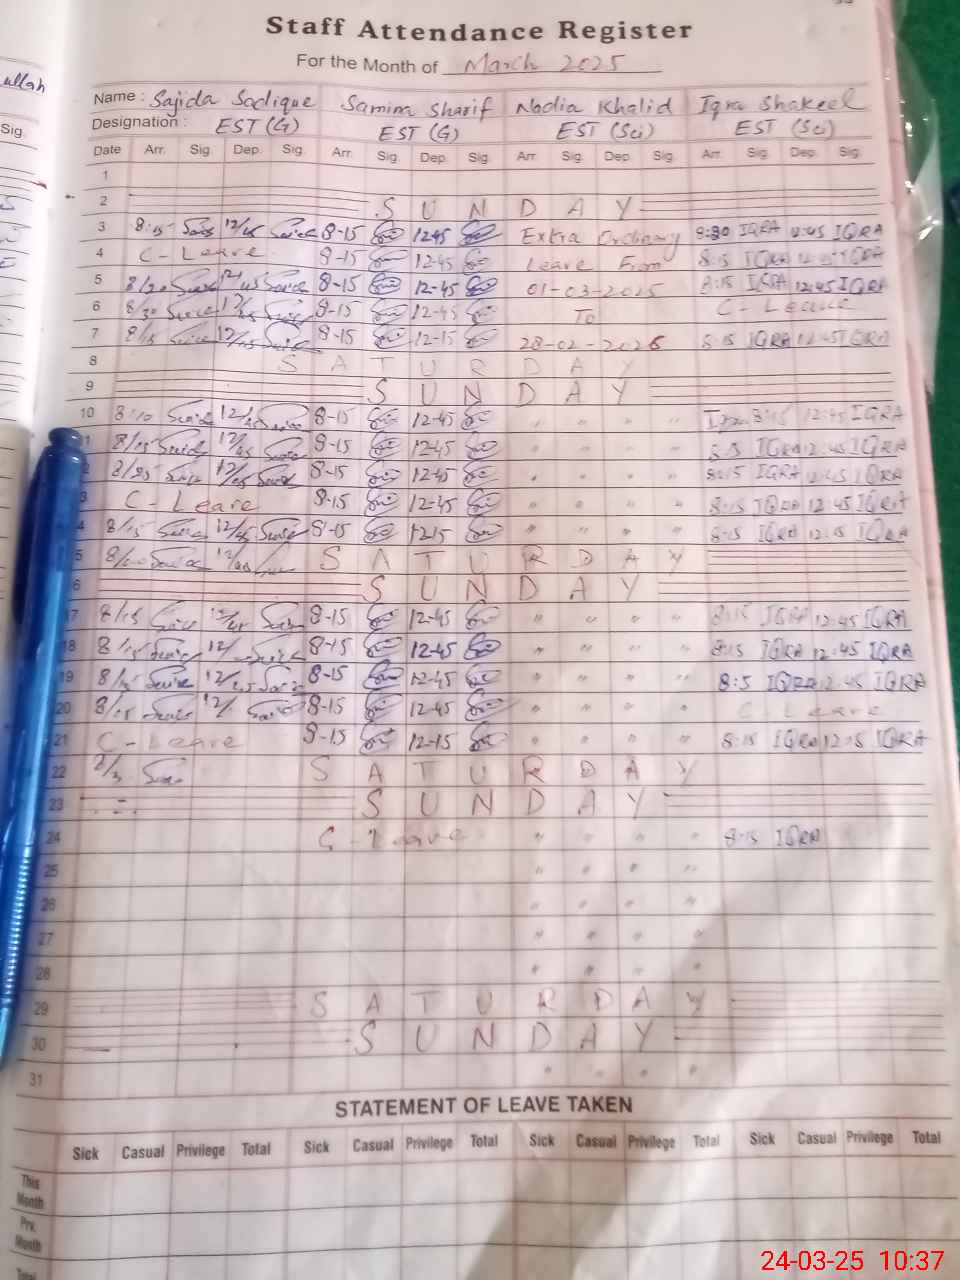 Staff Attendance Register
For the Month of March 2025
ullah
Name : Sajida Sadique Samina Sharif Nadia Khalid Iqra Shakeel
Designation : EST (G) EST (G) EST (Sci) EST (Sci)
Sig.
Date Arr. Sig. Dep. Sig. Arr. Sig. Dep. Sig. Arr. Sig. Dep. Sig. Arr. Sig. Dep. Sig.
1
2 SUNDAY
3 8:15 12/45 8-15 12-45 Extra Ordinary 8:30 IQRA 12:45 IQRA
4 C-Leave 8-15 12-45 Leave From 8:15 IQRA 12:45 IQRA
5 8/20 12/45 8-15 12-45 01-03-2025 8:15 IQRA 12:45 IQRA
6 8/30 8-15 12-45 To C-Leave
7 8/15 12/15 8-15 12-15 28-02-2026 8:15 IQRA 12:45 IQRA
8 SATURDAY
9 SUNDAY
10 8/10 8-15 12-45 " " " " 8:15 12:45 IQRA
1 8/15 12/45 8-15 12-45 " " " " IQRA 12:45 IQRA
2 8/25 8-15 12-45 " " " " 8:15 IQRA 12:45 IQRA
3 C-Leave 8-15 12-45 " " " " 8:15 IQRA 12:45 IQRA
4 8/15 8-15 1215 " " " " 8:15 IQRA 12:15 IQRA
5 SATURDAY
6 SUNDAY
17 8/15 12/45 8-15 12-45 " " " " 8:15 IQRA 12:45 IQRA
18 8/15 12/ 8-15 12-45 " " " " 8:15 IQRA 12:45 IQRA
19 8/15 12/45 8-15 12-45 " " " " 8:5 IQRA 12:45 IQRA
20 8/15 12/ 8-15 12-45 " " " " C-Leave
21 C-Leave 8-15 12-15 " " " " 8:15 IQRA 12:15 IQRA
22 SATURDAY
23 SUNDAY
24 C-Leave " " " " 8:15 IQRA
25 " " " "
26 " " " "
27 " " " "
28 " " " "
29 SATURDAY
30 SUNDAY
31 " " " "
STATEMENT OF LEAVE TAKEN
Sick Casual Privilege Total Sick Casual Privilege Total Sick Casual Privilege Total Sick Casual Privilege Total
This Month
Prv. Month
Total
24-03-25 10:37